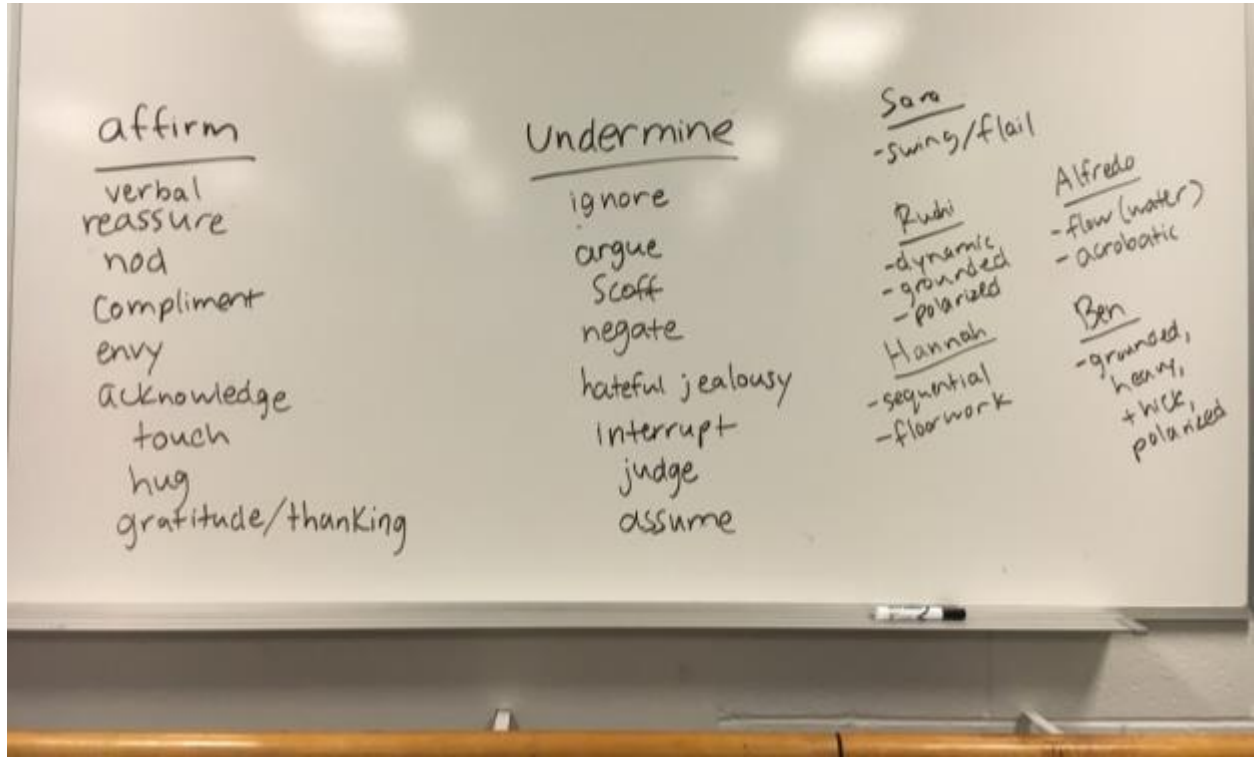 affirm
verbal
reassure
nod
Compliment
envy
acknowledge
touch
hug
gratitude/thanking
Undermine
ignore
argue
Scoff
negate
hateful jealousy
interrupt
judge
assume
Sara
-swing/flail
Rudhi
-dynamic
-grounded
-polarized
Hannah
-sequential
-floorwork
Alfredo
-flow (water)
-acrobatic
Ben
-grounded,
heavy,
thick,
polarized